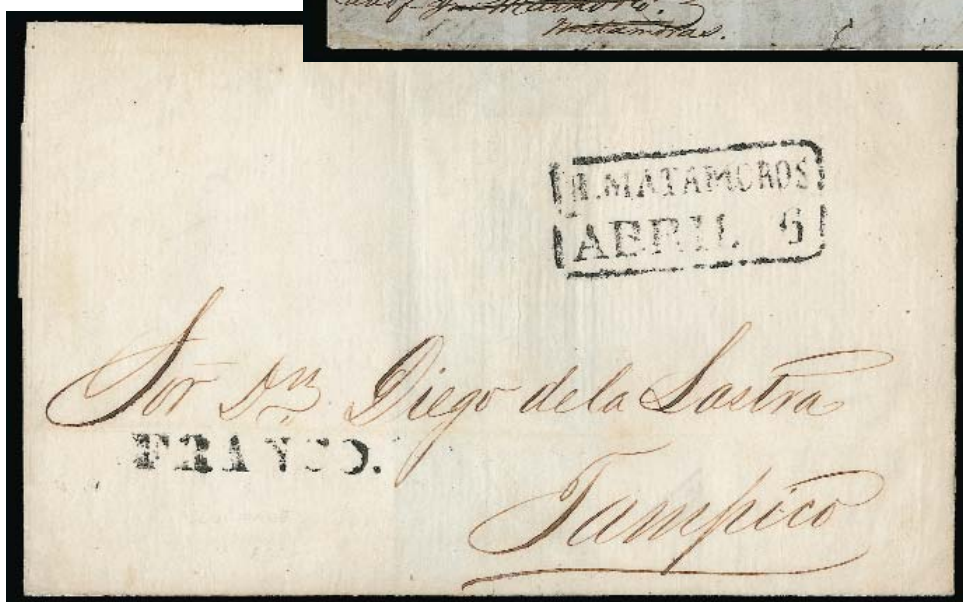 Matamoras.
H. MATAMOROS
ABRIL 6
Sor Dn Diego de la Lastra
FRANCO.
Tampico